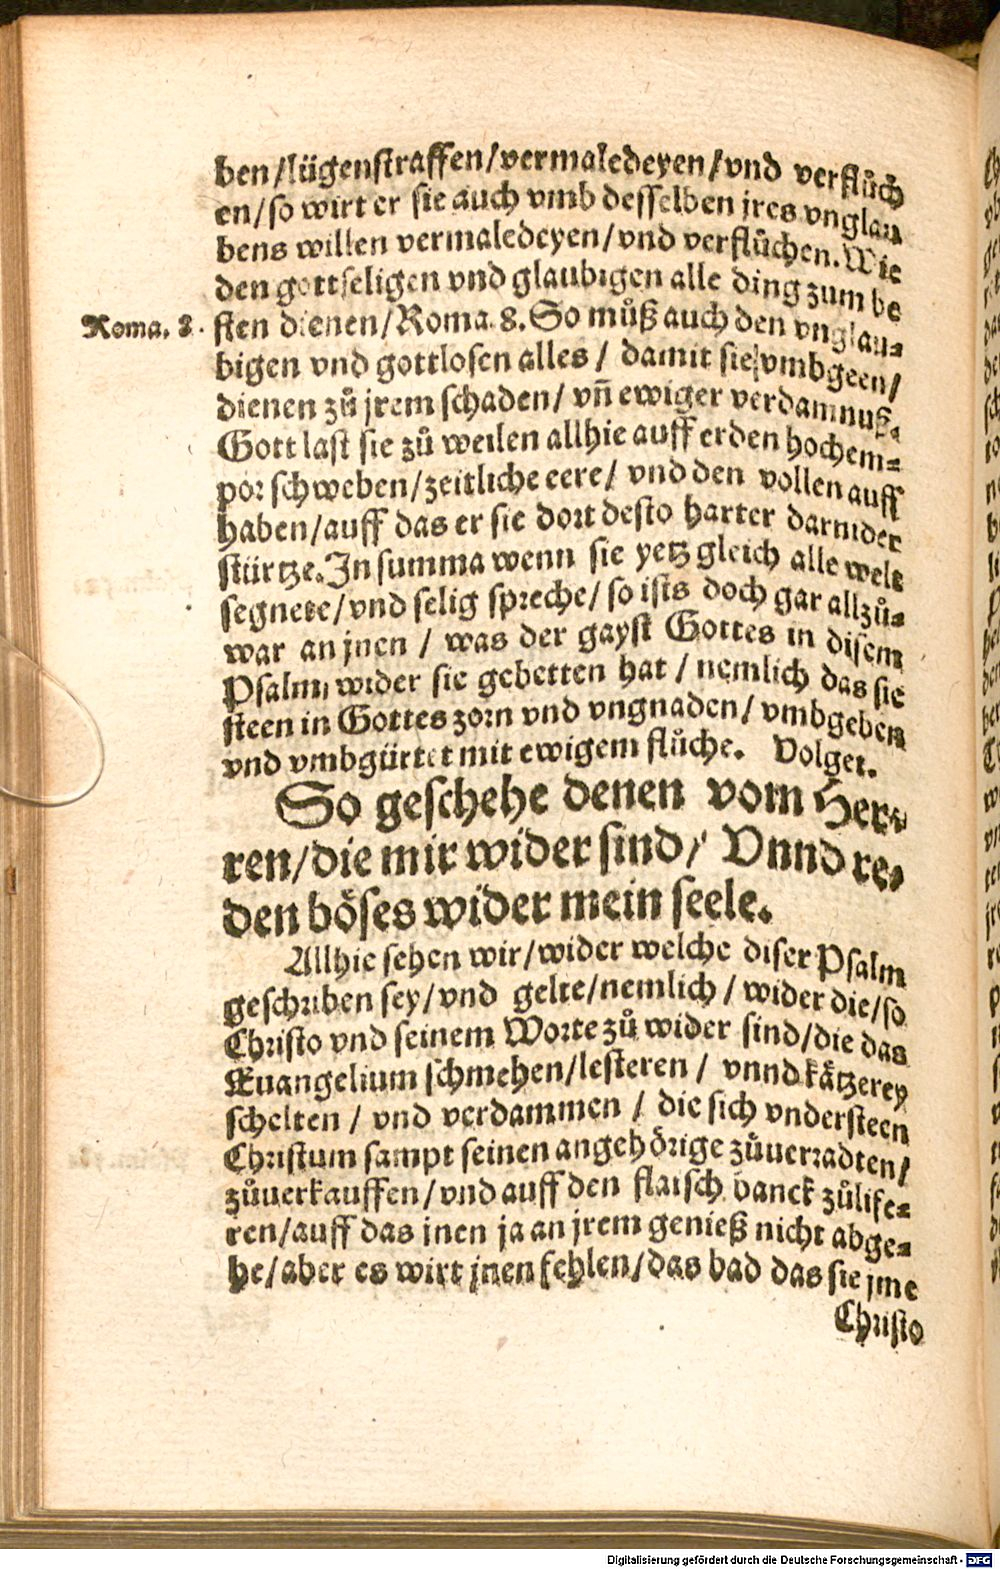 ben/lügenstraffen/vermaledeyen/vnd verflůch
en/so wirt er sie auch vmb desselben jres vnglau
bens willen vermaledeyen/vnd verflůchen. Wie
den gottseligen vnd glaubigen alle ding zum be
Roma. 8. sten dienen/Roma. 8. So můß auch den vnglau⸗
bigen vnd gottlosen alles/ damit sie vmbgeen/
dienen zů jrem schaden/ vñ ewiger verdamnuß.
Gott last sie zů weilen allhie auff erden hochem⸗
por schweben/zeitliche eere/ vnd den vollen auff
haben/auff das er sie dort desto harter darnider
stürtze. In summa wenn sie yetz gleich alle welt
segnete/vnd selig spreche/ so ists doch gar allzů⸗
war an jnen / was der gayst Gottes in disem
Psalm wider sie gebetten hat / nemlich das sie
steen in Gottes zorn vnd vngnaden/ vmbgeben
vnd vmbgürtet mit ewigem flůche. Volget.
So geschehe denen vom Her⸗
ren/die mir wider sind/ Vnnd re⸗
den böses wider mein seele.
Allhie sehen wir/wider welche diser Psalm
geschriben sey/vnd gelte/nemlich/ wider die/so
Christo vnd seinem Worte zů wider sind/die das
Euangelium schmehen/lesteren/ vnnd kätzerey
schelten/ vnd verdammen / die sich vndersteen
Christum sampt seinen angehörige zůuerradten/
zůuerkauffen/vnd auff den flaisch banck zůlife⸗
ren/auff das jnen ja an jrem genieß nicht abge⸗
he/aber es wirt jnen fehlen/das bad das sie jme
Christo
Digitalisierung gefördert durch die Deutsche Forschungsgemeinschaft - DFG